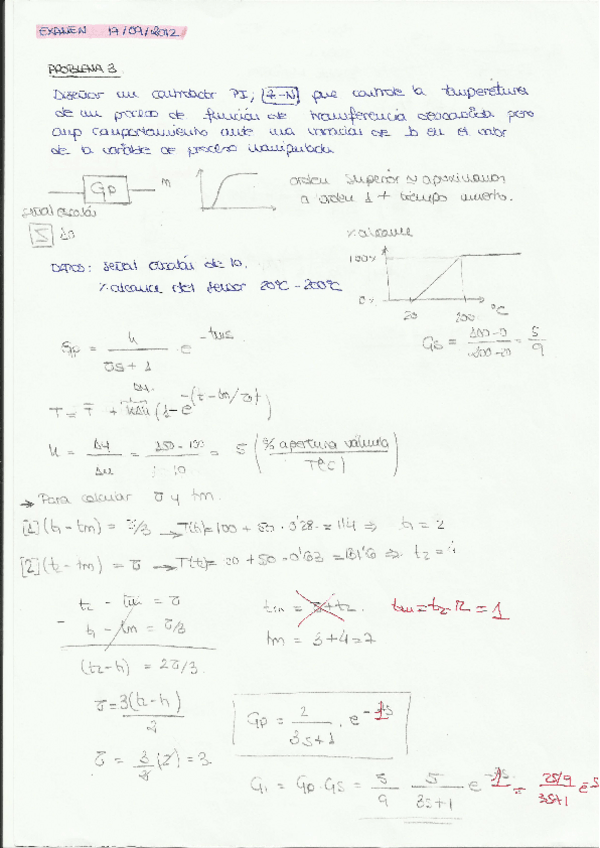 EXAMEN 17/09/2012
PROBLEMA 3.
Diseñar un controlador PI, Z-N, que controle la temperatura
de un proceso de función de transferencia desconocida pero
cuyo comportamiento ante una variación de 10 en el valor
de la variable de proceso manipulada
Gp
m
orden superior ≈ aproximamos
a orden 1 + tiempo muerto.
señal escalón
10
% alcance
DATOS: señal escalón de 10.
% alcance del sensor 20ºC - 200ºC
100%
0%
20
200
ºC
Gs = 100-0 / 200-20 = 5/9
Gp = k / τs + 1 · e^-tms
T = T + kΔu (1 - e^-(t-tm/τ))
k = Δy / Δu = 150 - 100 / 10 = 5 (% apertura válvula / T(ºC))
→ Para calcular τ y tm.
[1] (t1 - tm) = τ/3 → T(t1) = 100 + 50 · 0'28 = 114 ⇒ t1 = 2
[2] (t2 - tm) = τ → T(t2) = 50 · 0'63 = 131'6 ⇒ t2 =
t2 - tm = τ
- t1 - tm = τ/3
(t2 - t1) = 2τ/3.
tm = τ + t2. tm = t2 - τ = 1
tm = 3 + 4 = 7
τ = 3(t2 - t1) / 2
τ = 3/2 (2) = 3.
Gp = 2 / 3s + 1 · e^-1s
G1 = Gp · Gs = 5/9 5 / 3s + 1 e^-1s = 25/9 / 3s+1 e^-s